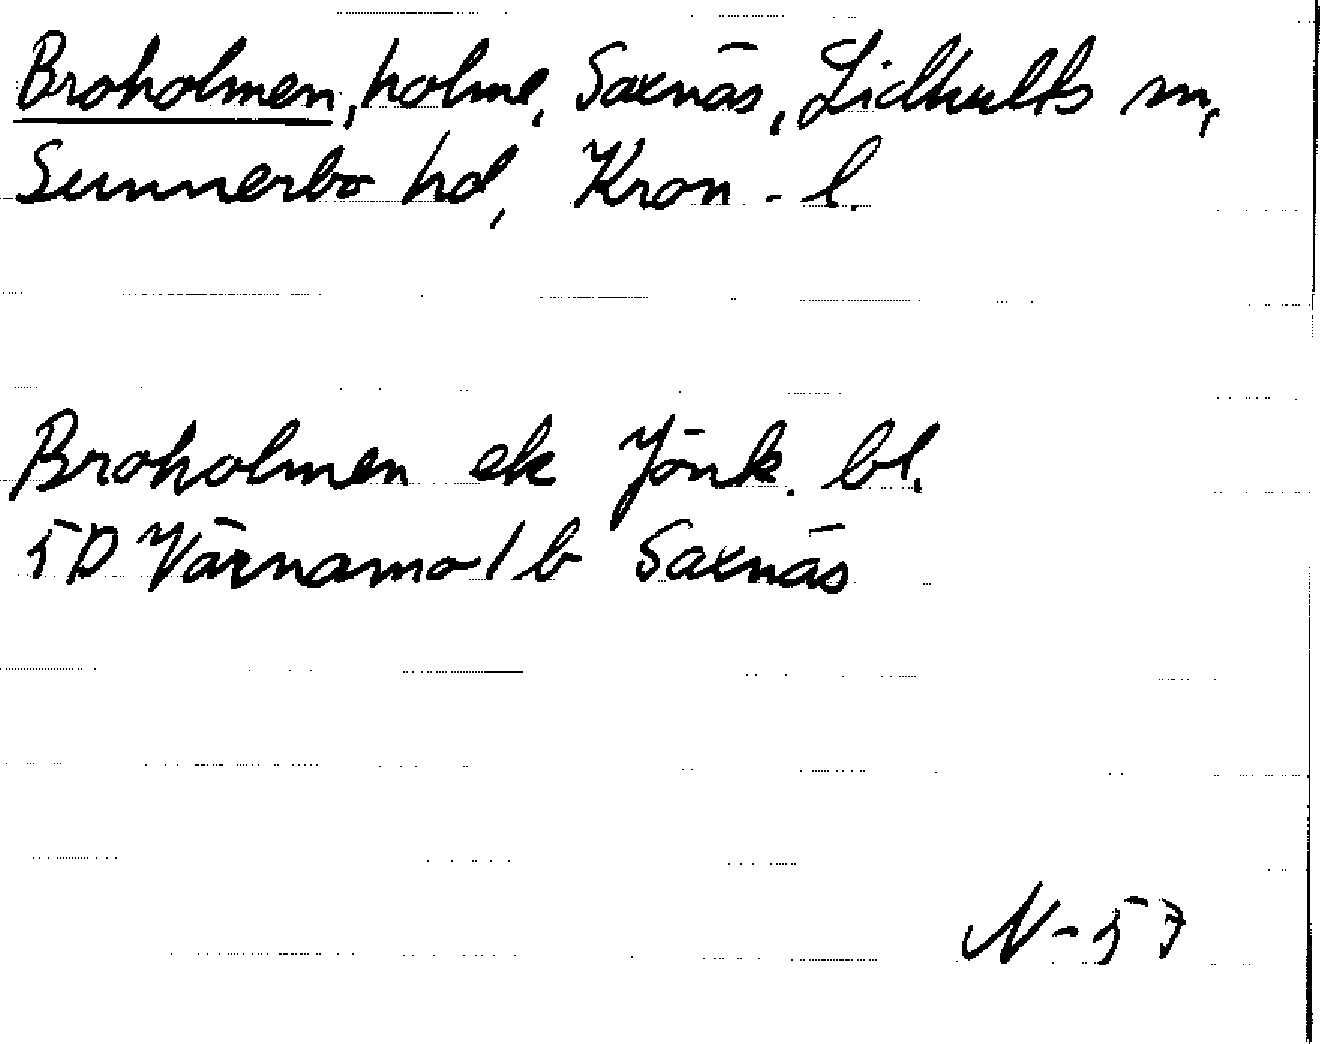 Broholmen, holme, Saxnäs, Lidhults sn,
Sunnerbo hd, Kron - l.
Broholmen ek Jönk. bl.
5D Värnamo 1 b Saxnäs
N-57